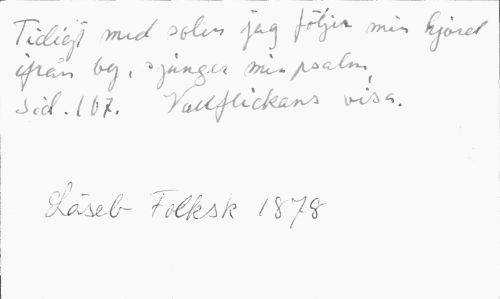 Tidigt med solen jag följer min hjord
ifrån by, sjunger min psalm,
Sid. 107. Vallflickans visa.
Läseb Folksk 1878